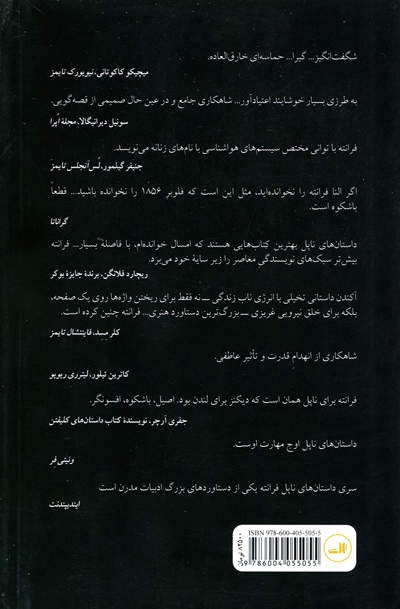 شگفت‌انگیز... گیرا... حماسه‌ای خارق‌العاده.
میچیکو کاکوتانی، نیویورک تایمز
به طرزی بسیار خوشایند اعتیادآور... شاهکاری جامع و در عین حال صمیمی از قصه‌گویی.
سونیل دیرانیگالا، مجلهٔ اُپرا
فرانته با توانی مختص سیستم‌های هواشناسی با نام‌های زنانه می‌نویسد.
جنیفر گیلمور، لُس آنجلس تایمز
اگر النا فرانته را نخوانده‌اید، مثل این است که فلوبرِ ۱۸۵۶ را نخوانده باشید... قطعاً
باشکوه است.
گرانتا
داستان‌های ناپل بهترین کتاب‌هایی هستند که امسال خوانده‌ام، با فاصلهٔ بسیار... فرانته
بیش‌تر سبک‌های نویسندگیِ معاصر را زیر سایهٔ خود می‌برد.
ریچارد فلانگن، برندهٔ جایزهٔ بوکر
آکندن داستانی تخیلی با انرژی ناب زندگی — نه فقط برای ریختن واژه‌ها روی یک صفحه،
بلکه برای خلق نیرویی غریزی — بزرگ‌ترین دستاورد هنری... فرانته چنین کرده است.
کلر مِسِد، فایننشال تایمز
شاهکاری از انهدامِ قدرت و تأثیر عاطفی.
کاترین تیلور، لیترری ریویو
فرانته برای ناپل همان است که دیکنز برای لندن بود. اصیل، باشکوه، افسونگر.
جفری آرچر، نویسندهٔ کتاب داستان‌های کلیفتن
داستان‌های ناپل اوج مهارت اوست.
ونیتی فر
سری داستان‌های ناپل فرانته یکی از دستاوردهای بزرگ ادبیات مدرن است
ایندیپندنت
ISBN 978-600-405-505-5
9 786004 055055
ثالث